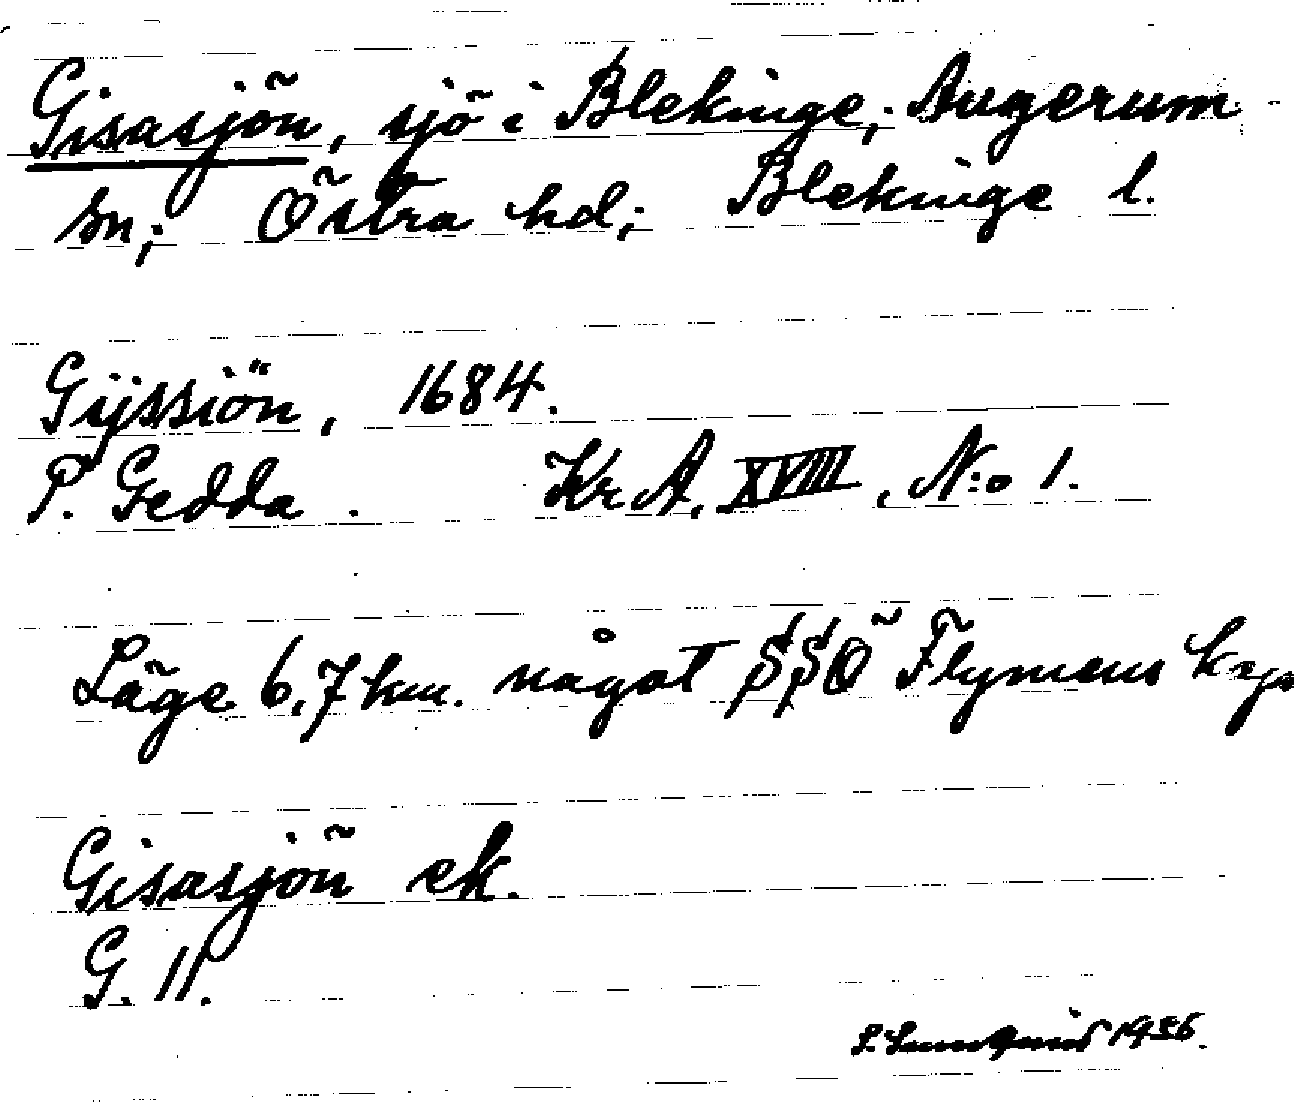 Gisasjön, sjö i Blekinge; Augerum
sn; Östra hd; Blekinge l.
Gijssiön, 1684.
P. Gedda. Kr A, XVIII, N:o 1.
Läge 6,7 km. något SSÖ Flymens ka
Gisasjön ek.
G. 11.
S. Lundquist 1936.